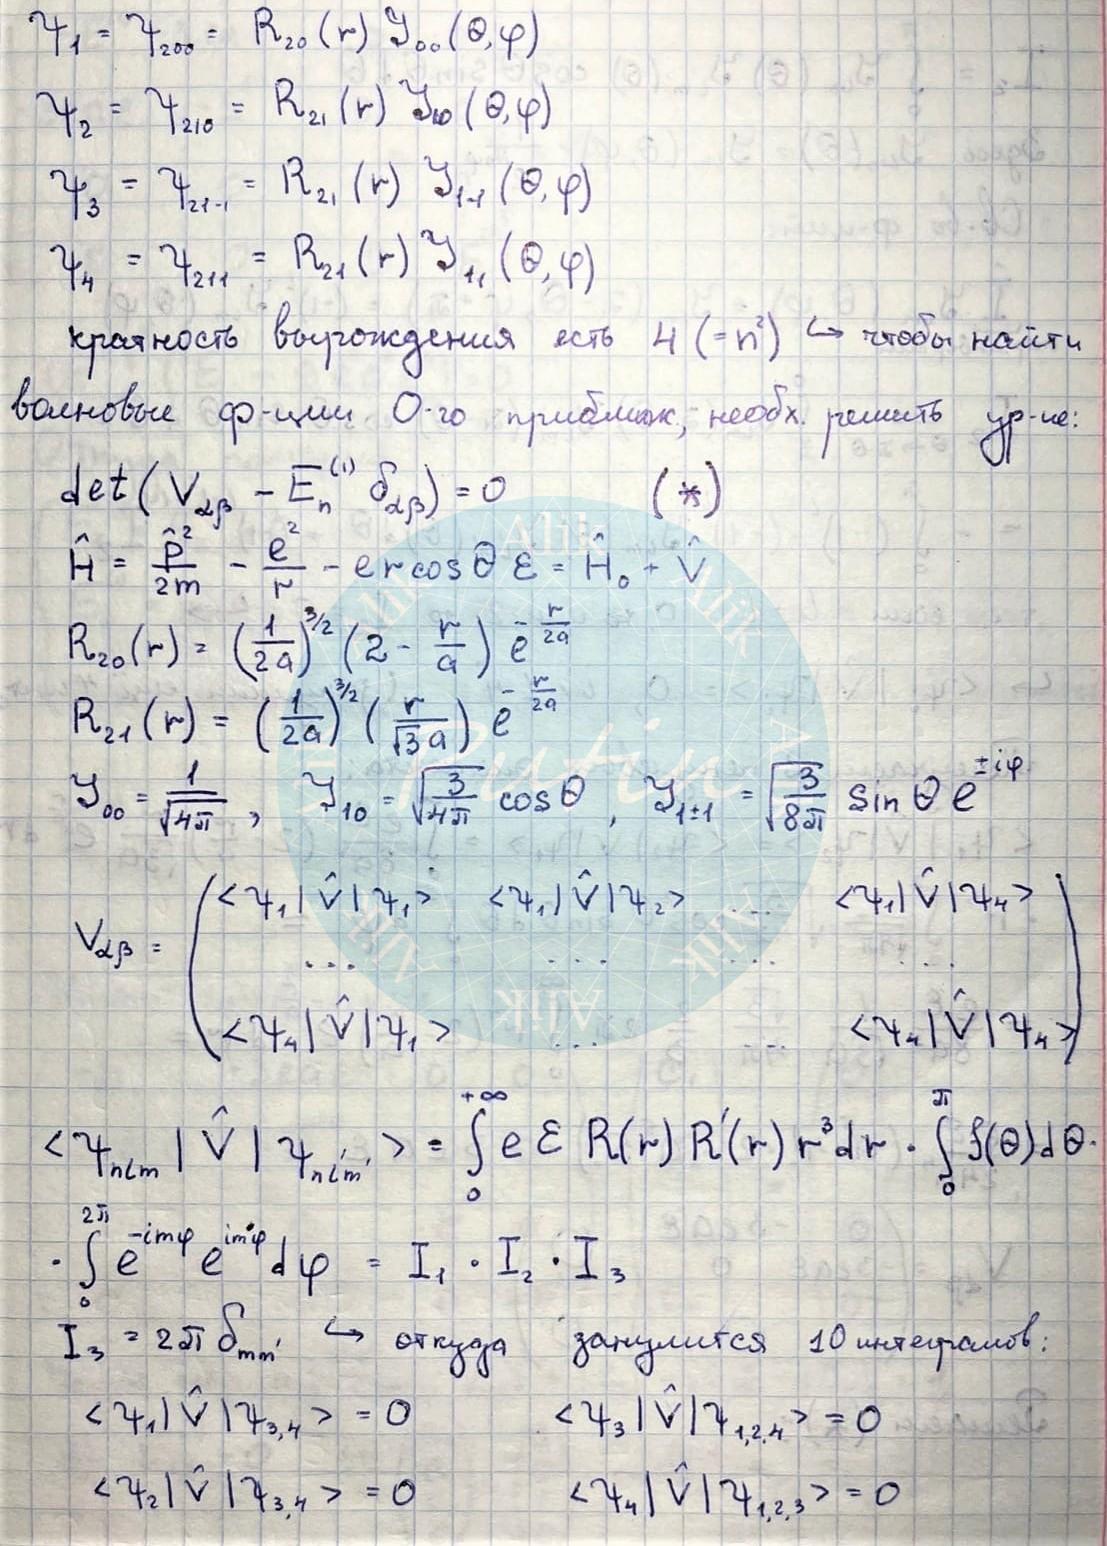 ψ₁ = ψ₂₀₀ = R₂₀(r) Y₀₀(θ,φ)
ψ₂ = ψ₂₁₀ = R₂₁(r) Y₁₀(θ,φ)
ψ₃ = ψ₂₁₋₁ = R₂₁(r) Y₁₋₁(θ,φ)
ψ₄ = ψ₂₁₁ = R₂₁(r) Y₁₁(θ,φ)
кратность вырождения есть 4 (=n²) ↪ чтобы найти
волновые ф-ции 0-го приближ., необх. решить ур-ие:
det(V_αβ − E_n^(1) δ_αβ) = 0 (*)
Ĥ = p̂²/2m − e²/r − er cosθ ℰ = Ĥ₀ + V̂
R₂₀(r) = (1/2a)^3/2 (2 − r/a) e^(−r/2a)
R₂₁(r) = (1/2a)^3/2 (r/√3a) e^(−r/2a)
Y₀₀ = 1/√4π, Y₁₀ = √(3/4π) cosθ, Y₁±₁ = √(3/8π) sinθ e^(±iφ)
V_αβ = ( <ψ₁|V̂|ψ₁> <ψ₁|V̂|ψ₂> ... <ψ₁|V̂|ψ₄>
... ... ... ...
<ψ₄|V̂|ψ₁> ... ... <ψ₄|V̂|ψ₄> )
<ψ_nlm|V̂|ψ_nl'm'> = ∫₀^+∞ eℰ R(r) R'(r) r³dr · ∫₀^π f(θ)dθ·
· ∫₀^2π e^(−imφ) e^(im'φ) dφ = I₁ · I₂ · I₃
I₃ = 2π δ_mm' ↪ откуда занулится 10 интегралов:
<ψ₁|V̂|ψ₃,₄> = 0 <ψ₃|V̂|ψ₁,₂,₄> = 0
<ψ₂|V̂|ψ₃,₄> = 0 <ψ₄|V̂|ψ₁,₂,₃> = 0
Alik
Alik
Alik
Alik
Alik
Alik
Alik
Putin